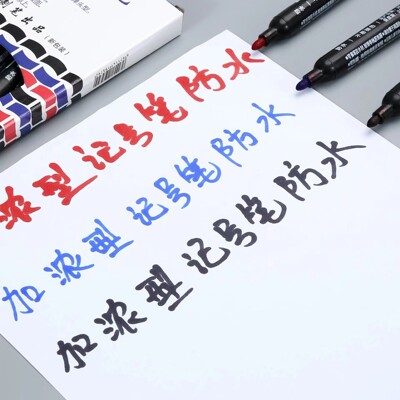 浓型记号笔防水
加浓型记号笔防水
加浓型记号笔防水